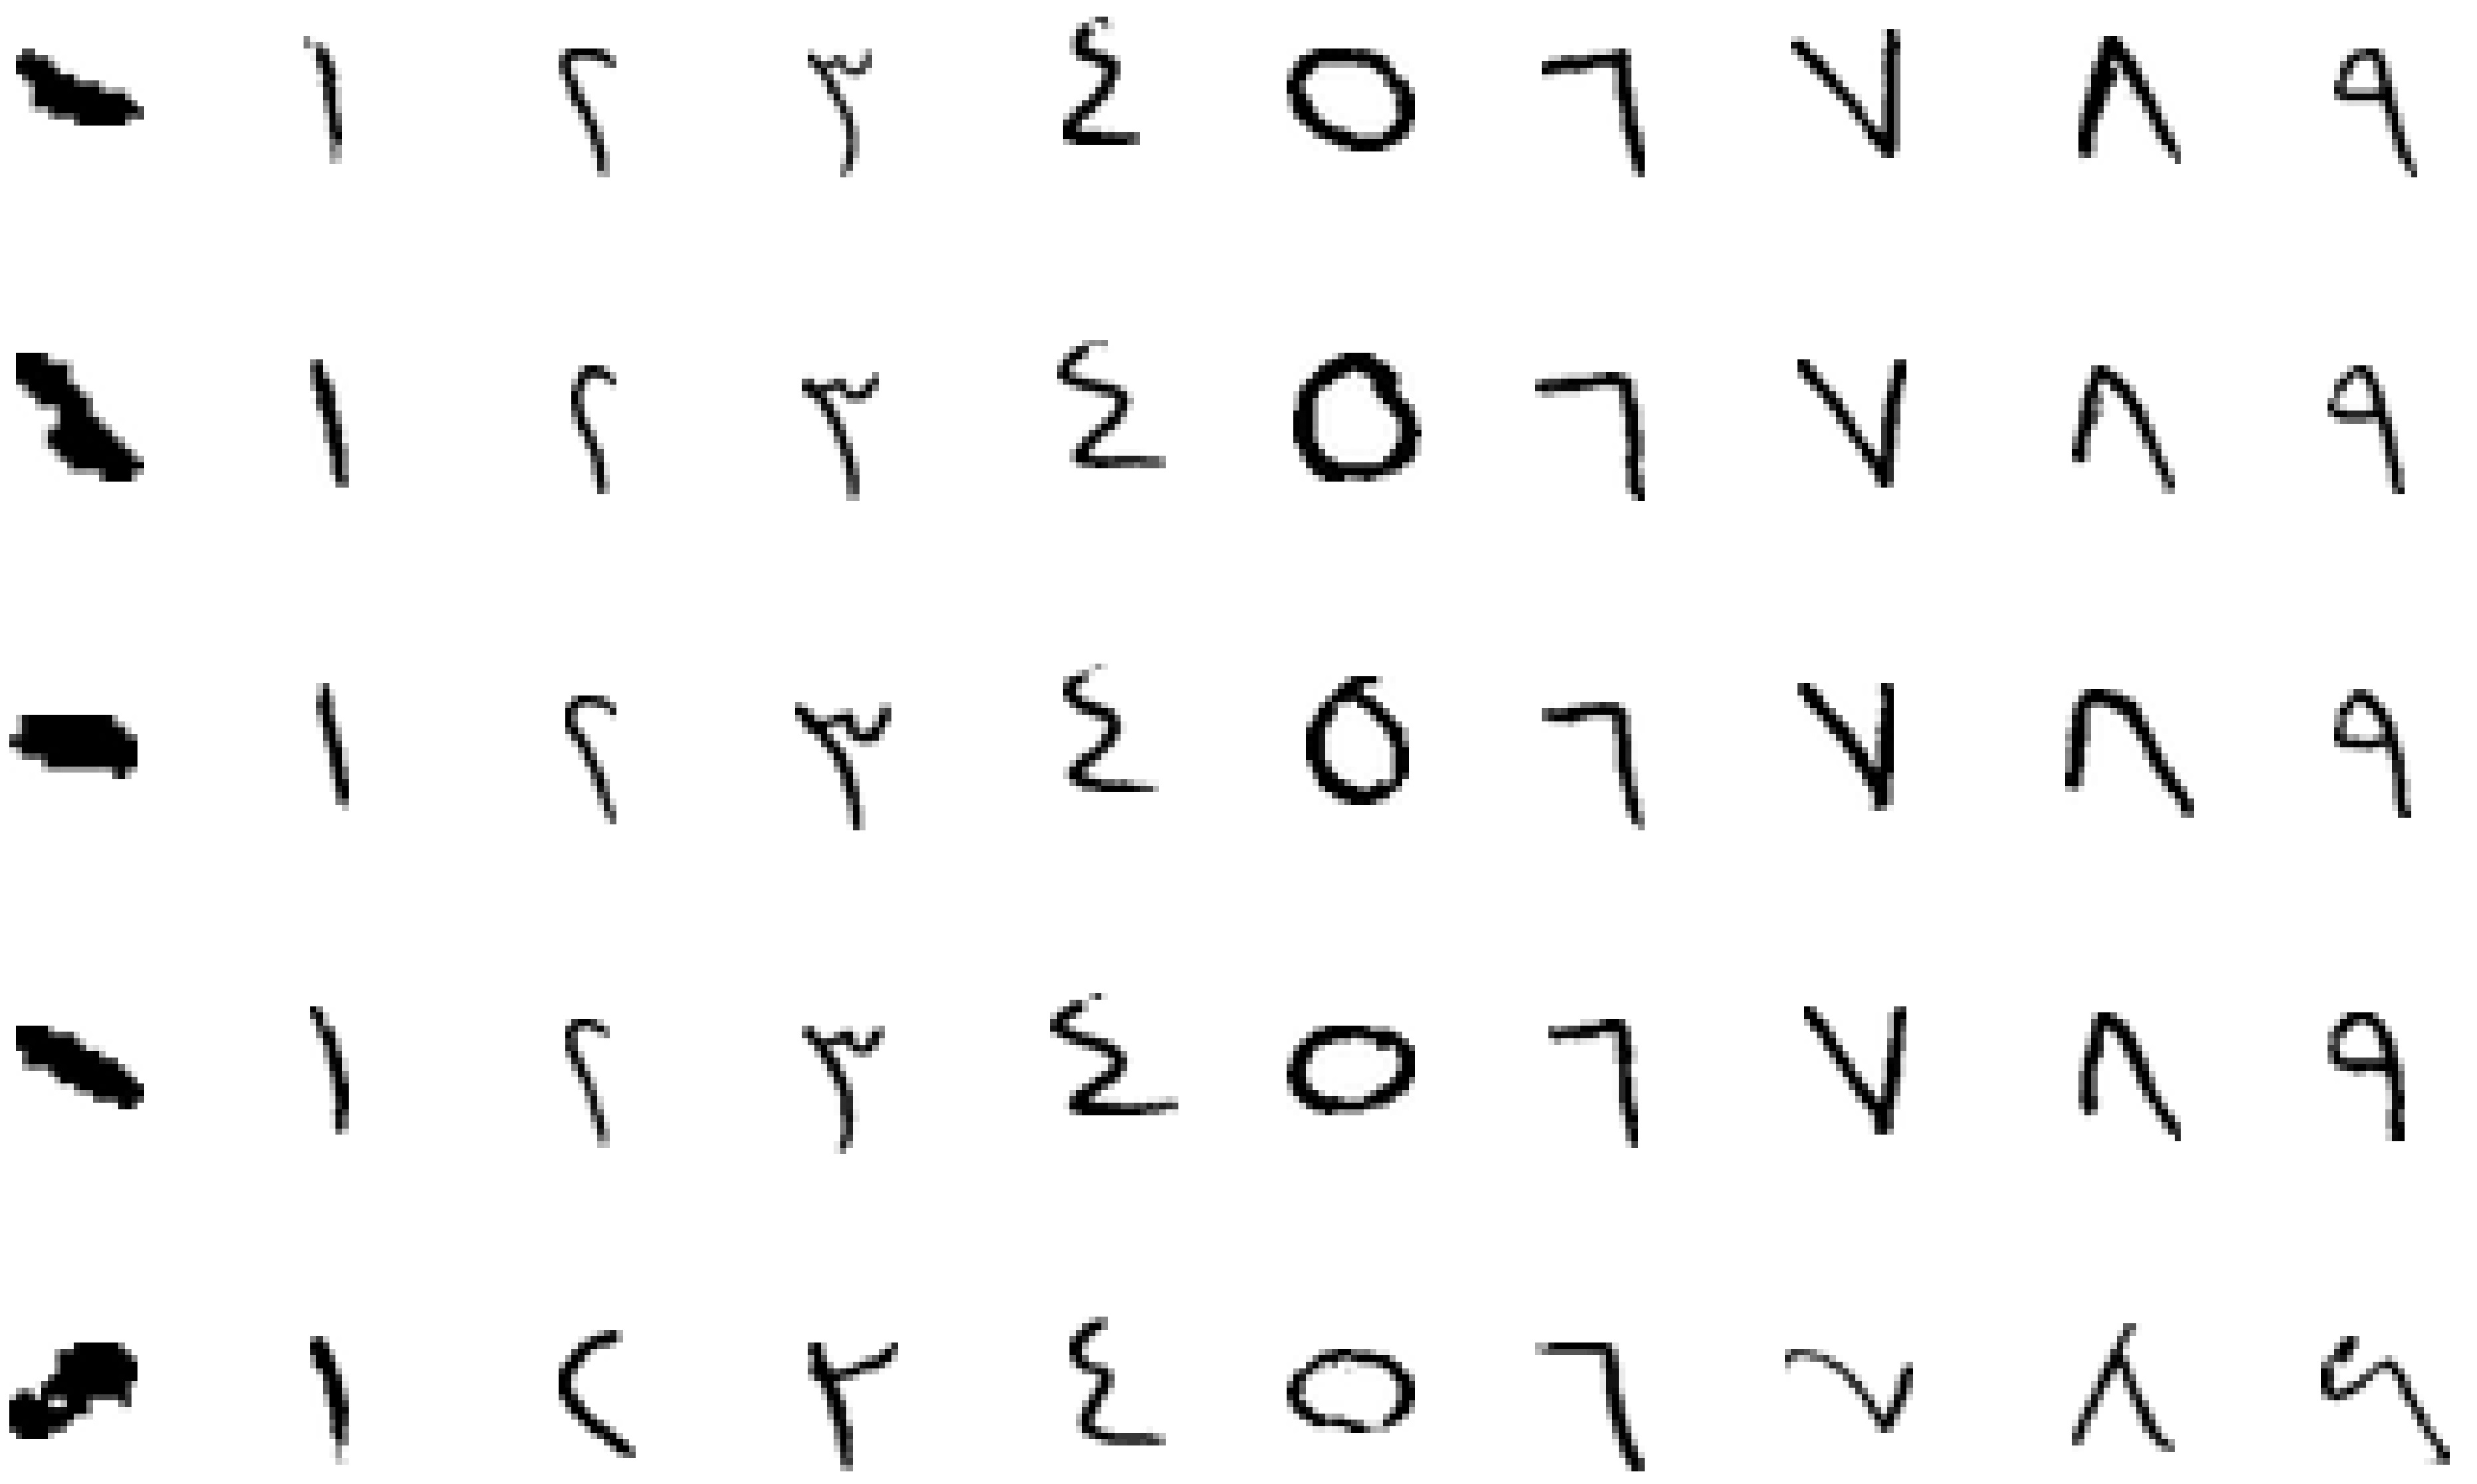 ٠ ١ ٢ ٣ ٤ ٥ ٦ ٧ ٨ ٩
٠ ١ ٢ ٣ ٤ ٥ ٦ ٧ ٨ ٩
٠ ١ ٢ ٣ ٤ ٥ ٦ ٧ ٨ ٩
٠ ١ ٢ ٣ ٤ ٥ ٦ ٧ ٨ ٩
٠ ١ ٢ ٣ ٤ ٥ ٦ ٧ ٨ ٩